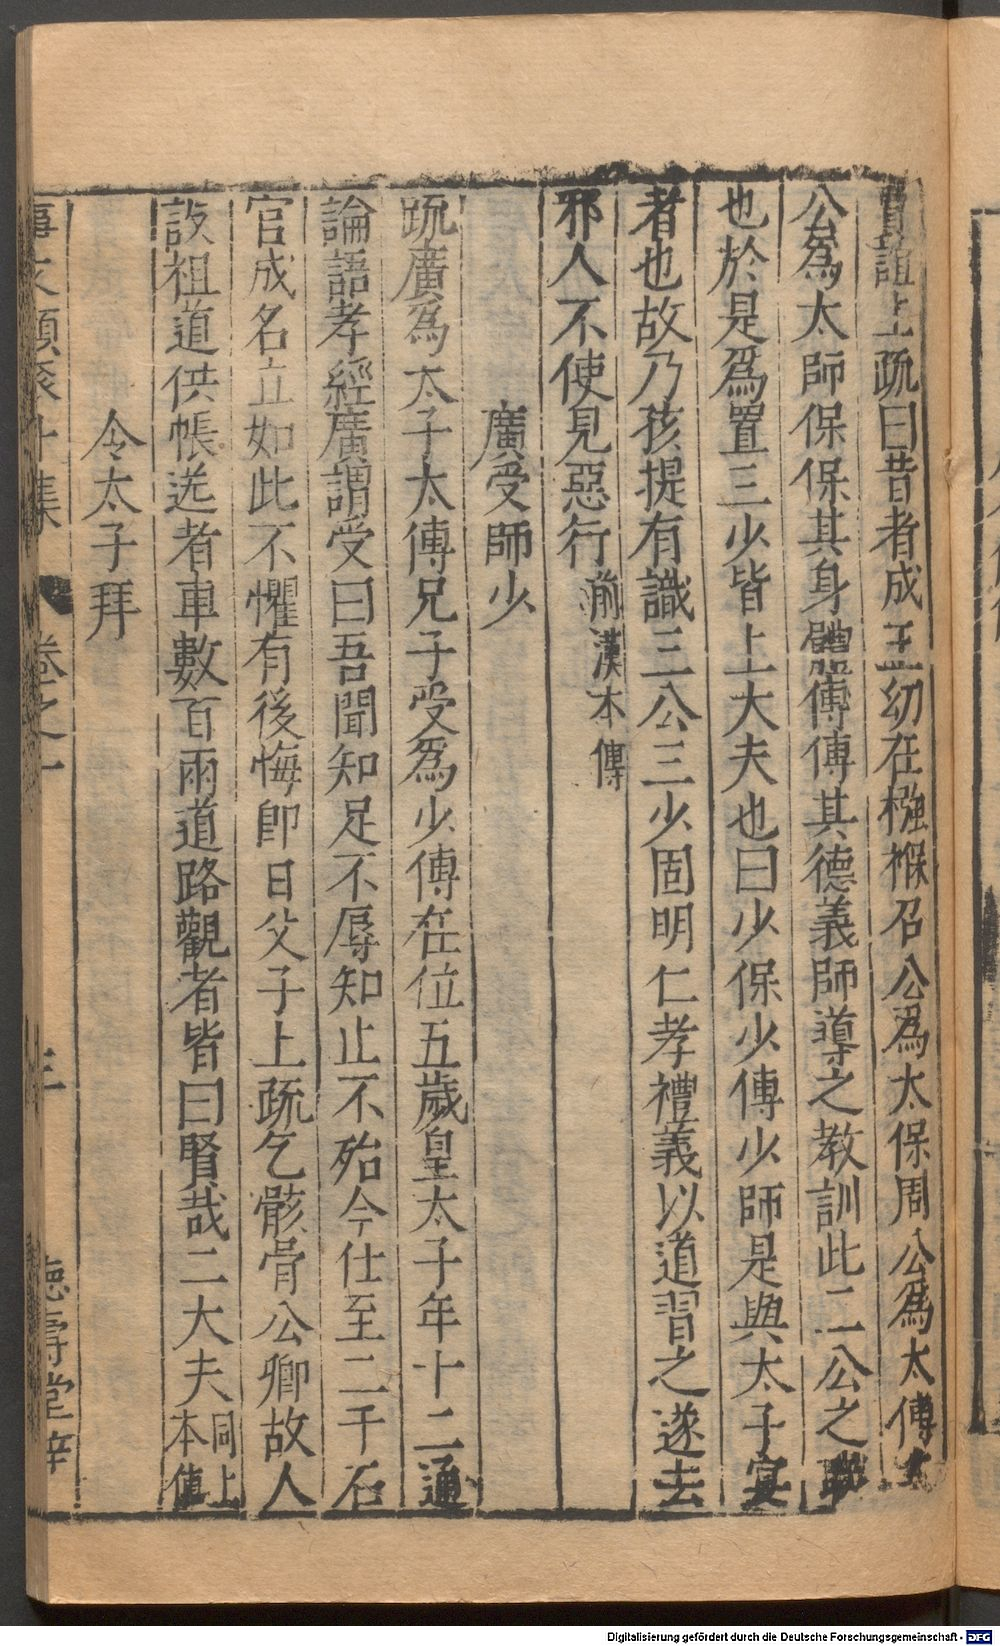 賈誼上疏曰昔者成王幼在襁褓召公爲太保周公爲太傅太
公爲太師保保其身體傅傅其德義師導之教訓此三公之職
也於是爲置三少皆上大夫也曰少保少傅少師是與太子宴
者也故乃孩提有識三公三少固明仁孝禮義以道習之逐去
邪人不使見惡行前漢本傳
廣受師少
疏廣爲太子太傅兄子受爲少傅在位五歲皇太子年十二通
論語孝經廣謂受曰吾聞知足不辱知止不殆今仕至二千石
官成名立如此不懼有後悔卽日父子上疏乞骸骨公卿故人
設祖道供帳送者車數百兩道路觀者皆曰賢哉二大夫同上本傳
令太子拜
事文類聚外集 卷之一 三 德壽堂梓
Digitalisierung gefördert durch die Deutsche Forschungsgemeinschaft - DFG